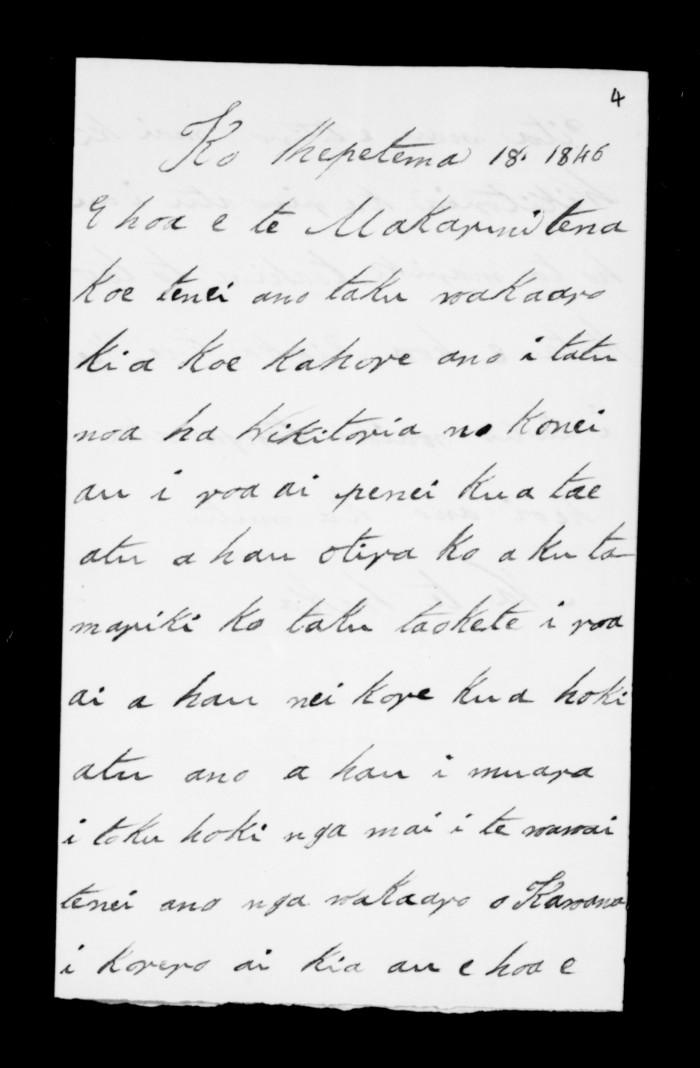 4
Ko Hepetema 18. 1846
E hoa e te Makarini tena
koe tenei ano taku wakaaro
kia koe kahore ano i tatu
noa ha Wikitoria no konei
au i roa ai penei kua tae
atu a hau otira ko aku ta
mariki ko taku taokete i roa
ai a hau nei kore kua hoki
atu ano a hau i muara
i toku hoki nga mai i te wawai
tenei ano nga wakaaro o Kawana
i korero ai kia au e hoa e